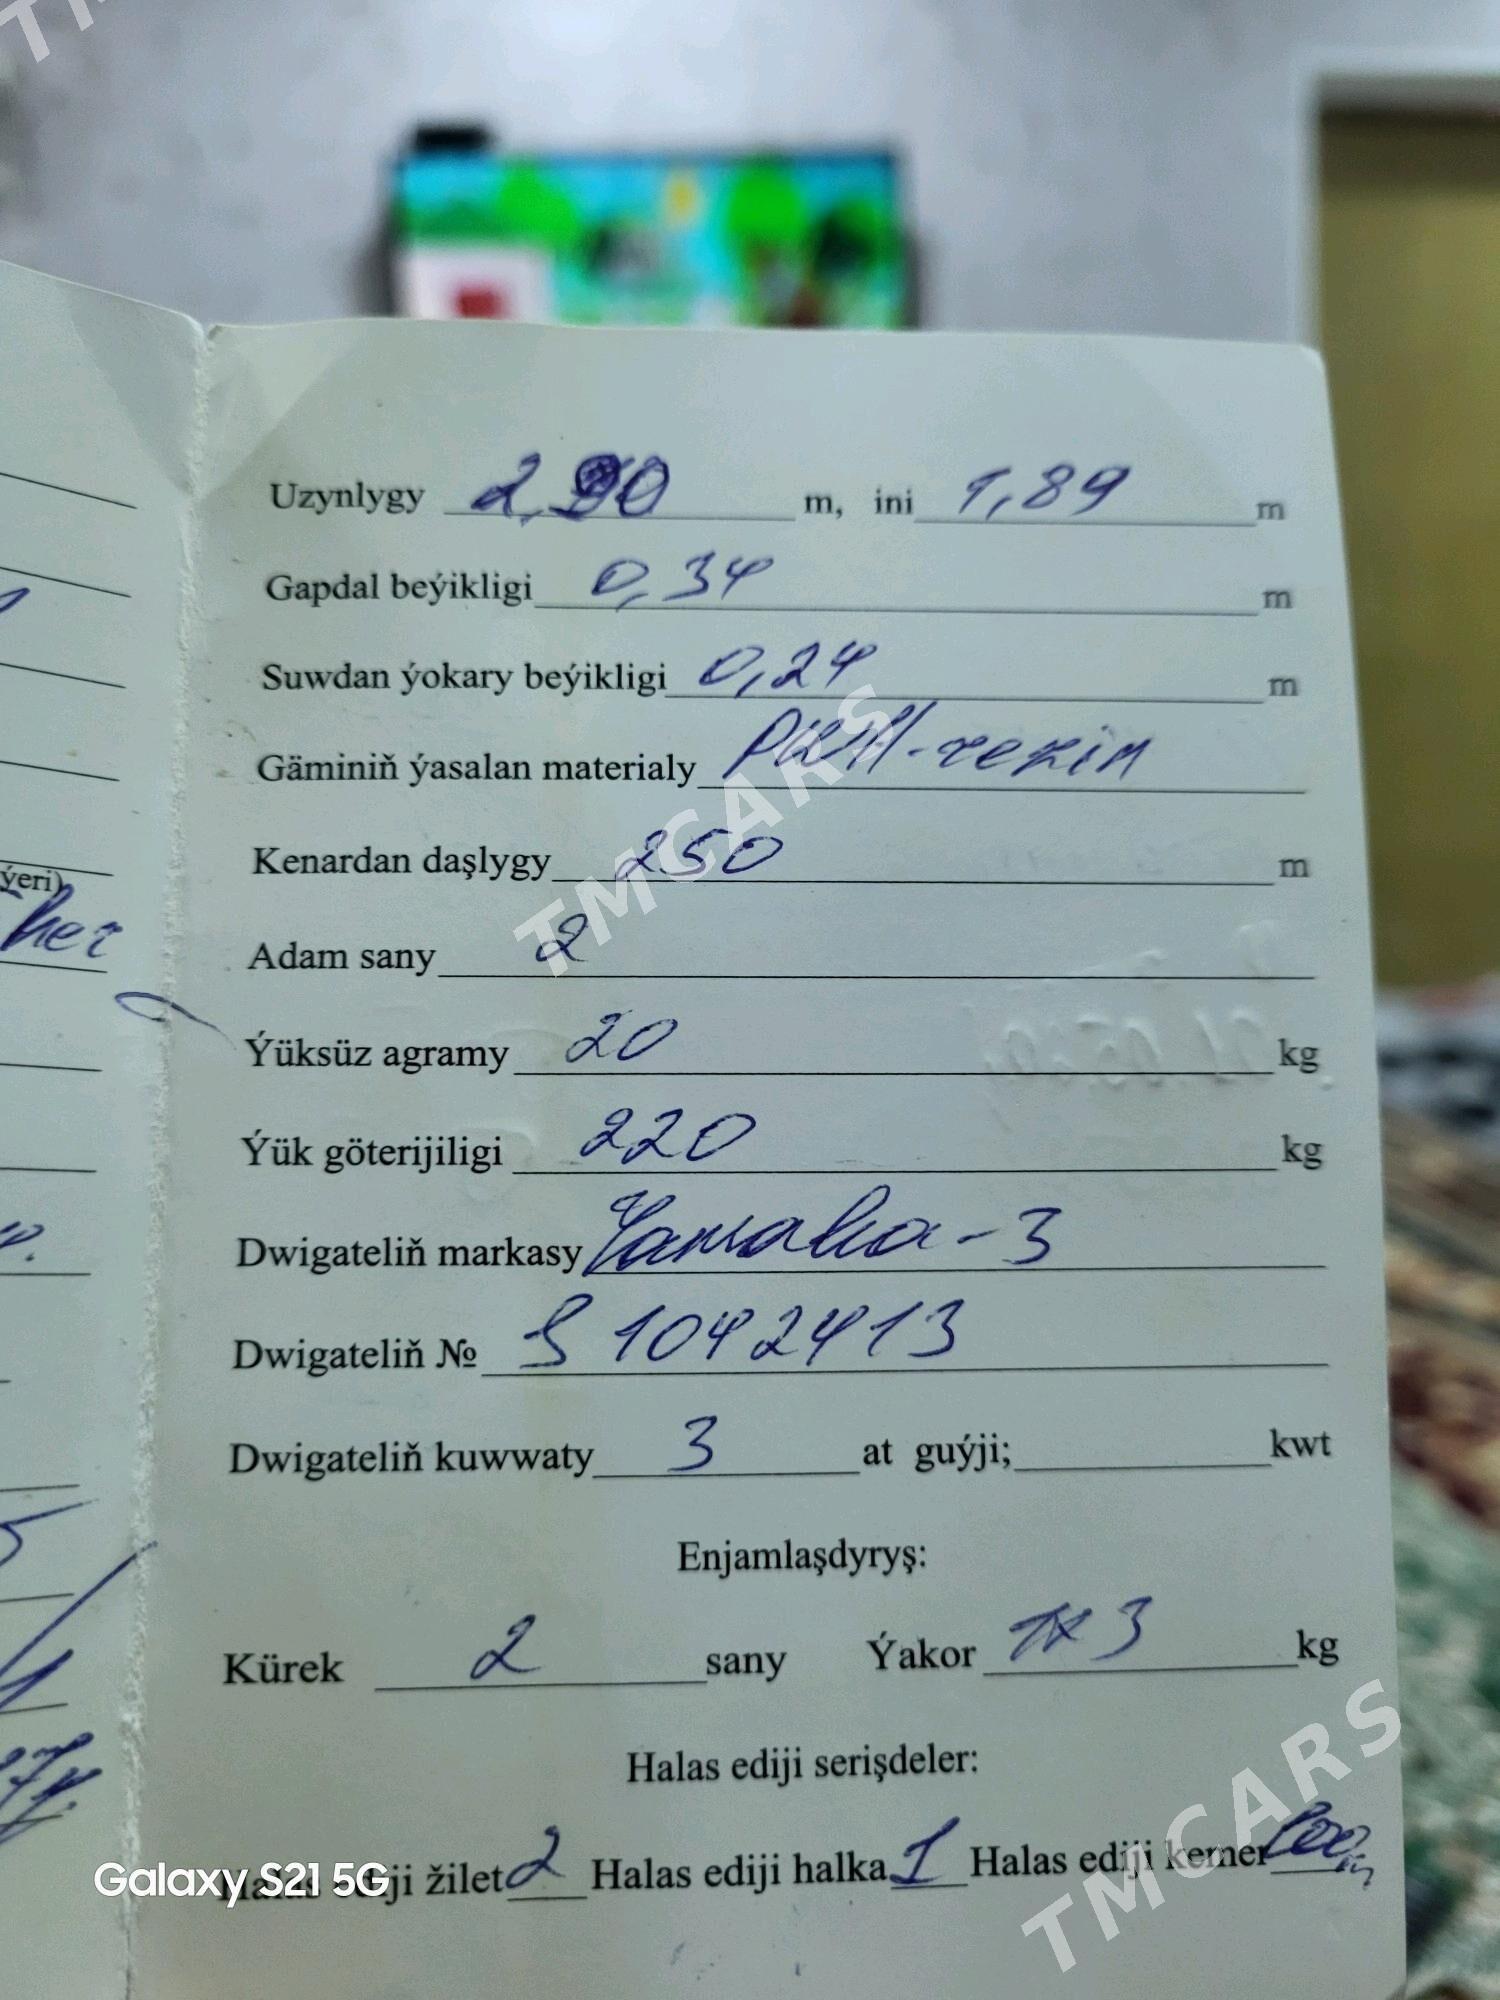 Uzynlygy 2,90 m, ini 1,89 m
Gapdal beýikligi 0,34 m
Suwdan ýokary beýikligi 0,24 m
Gäminiň ýasalan materialy PWH-rezin
ýeri)
Kenardan daşlygy 250 m
Adam sany 2
Ýüksüz agramy 20 kg
Ýük göterijiligi 220 kg
Dwigateliň markasy Yamaha-3
Dwigateliň № S 1042413
Dwigateliň kuwwaty 3 at guýji; kwt
Enjamlaşdyryş:
Kürek 2 sany Ýakor 1x3 kg
Halas ediji serişdeler:
Halas ediji žilet 2 Halas ediji halka 1 Halas ediji kemer
Galaxy S21 5G
TMCARS
TMCARS